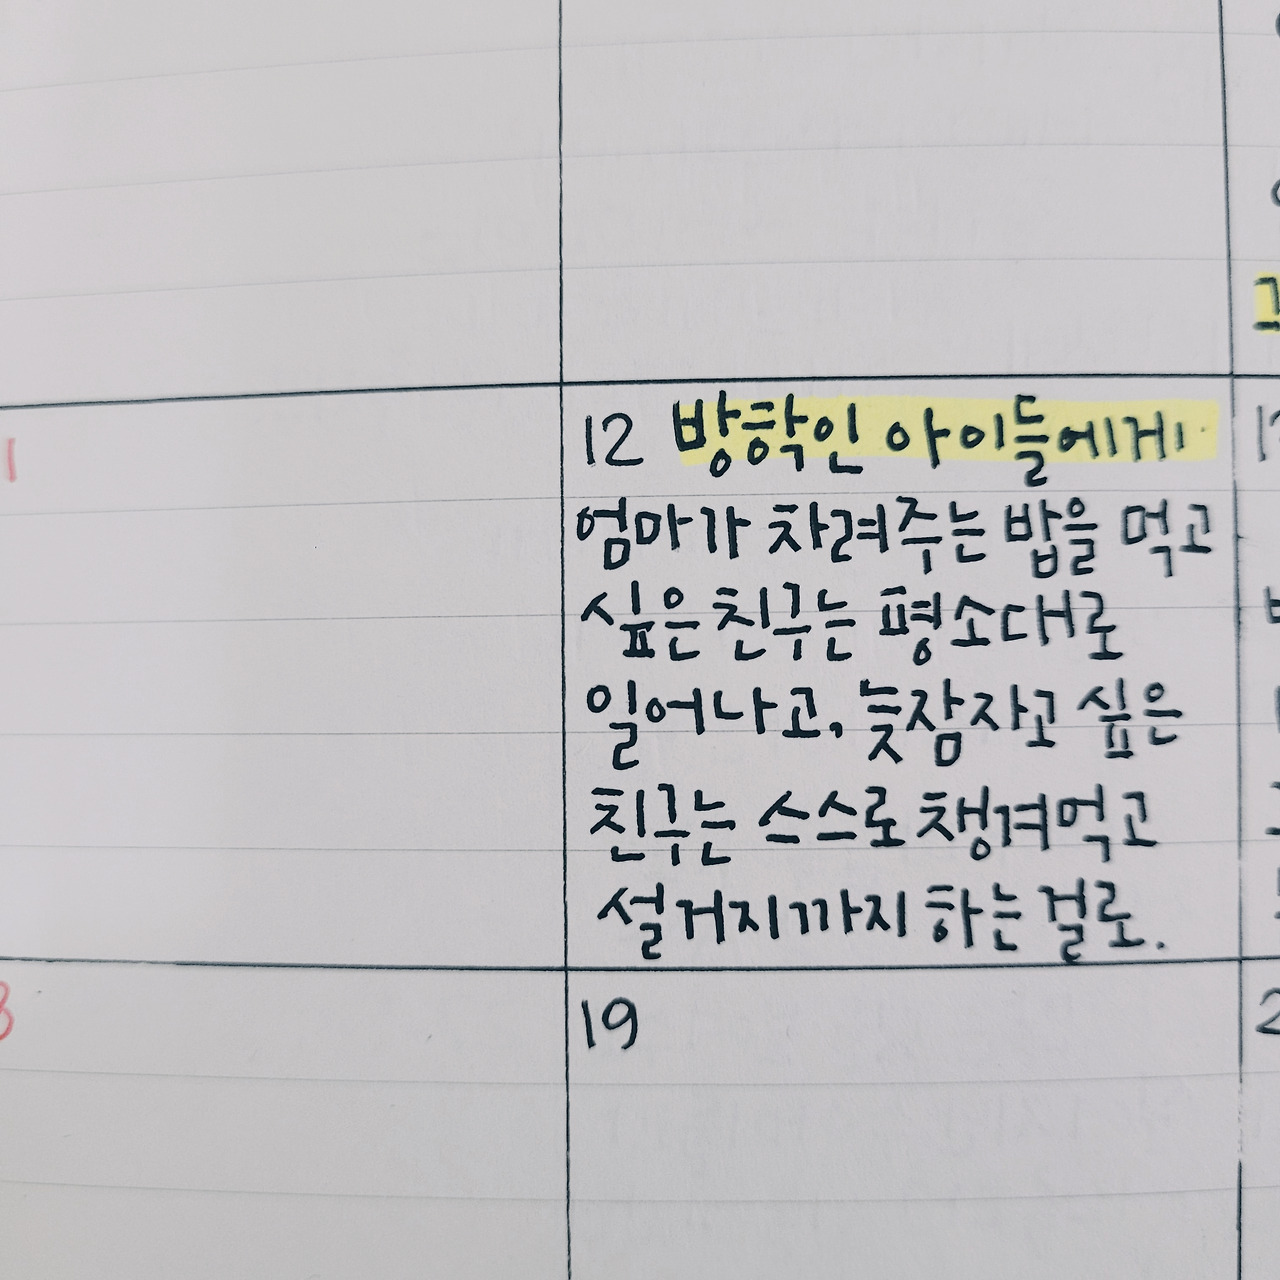 12 방학인 아이들에게
엄마가 차려주는 밥을 먹고
싶은 친구는 평소대로
일어나고, 늦잠자고 싶은
친구는 스스로 챙겨먹고
설거지까지 하는 걸로.
19